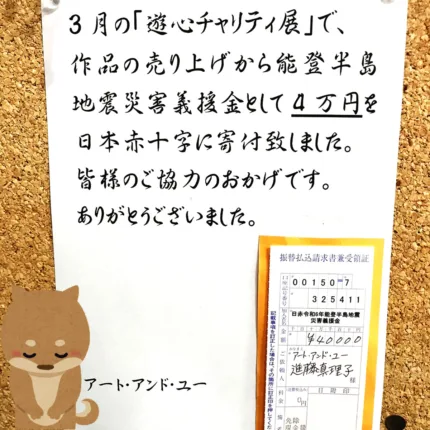 3月の「遊心チャリティ展」で、
作品の売り上げから能登半島
地震災害義援金として4万円を
日本赤十字に寄付致しました。
皆様のご協力のおかげです。
ありがとうございました。
アート・アンド・ユー
振替払込請求書兼受領証
00150 7
325411
日赤令和6年能登半島地震
災害義援金
¥40000
アート・アンド・ユー
進藤真理子 様